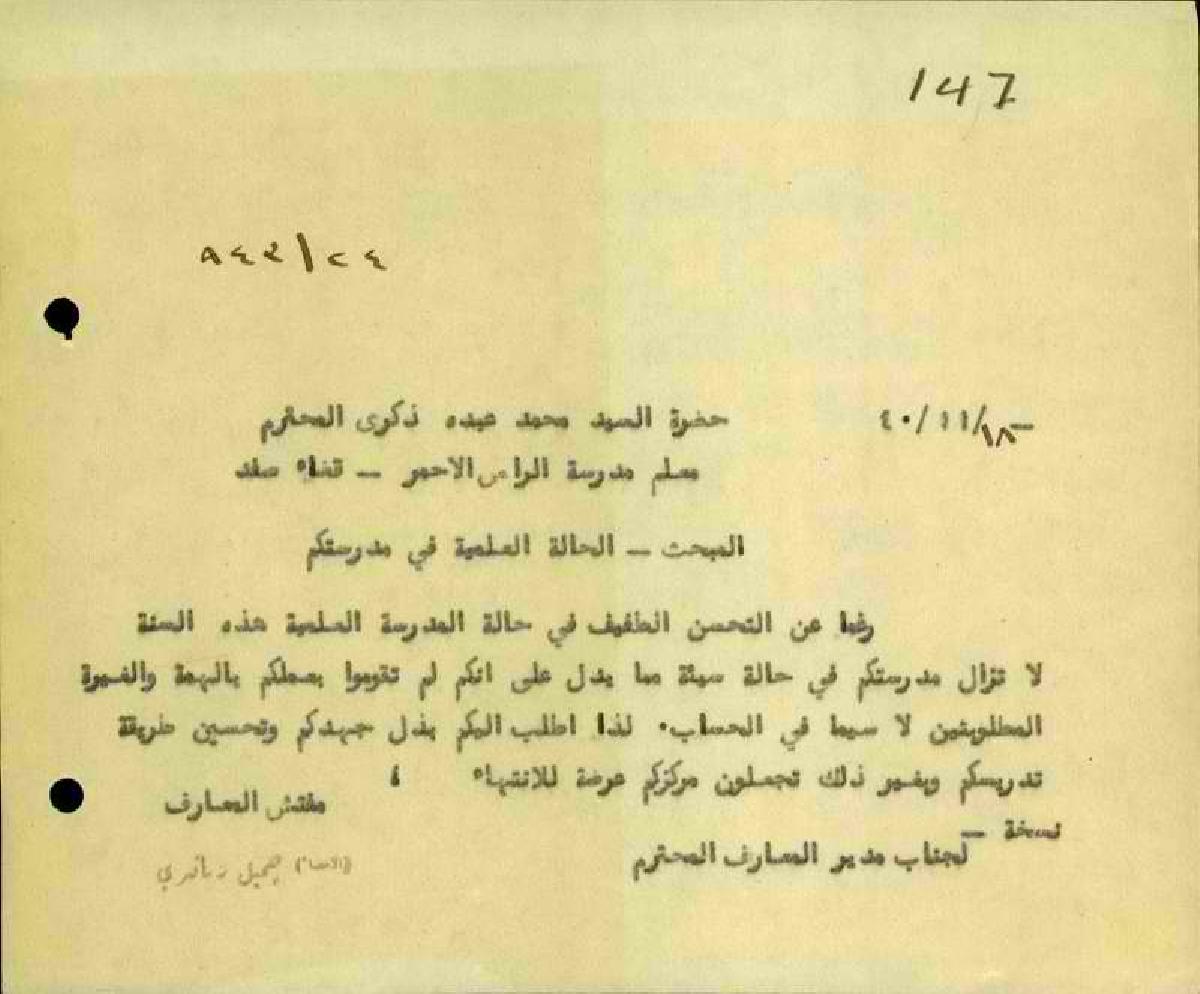 147
٩٤٢/٢٤
١٨/١١/٤٠
حضرة السيد محمد عبده ذكرى المحترم
معلم مدرسة الراس الاحمر – قضاء صفد
المبحث – الحالة العلمية في مدرستكم
رغما عن التحسن الطفيف في حالة المدرسة العلمية هذه السنة
لا تزال مدرستكم في حالة سيئة مما يدل على انكم لم تقوموا بعملكم بالهمة والغيرة
المطلوبتين لا سيما في الحساب. لذا اطلب اليكم بذل جهدكم وتحسين طريقة
تدريسكم وبغير ذلك تجعلون مركزكم عرضة للانتهاء ؛
مفتش المعارف
نسخة –
لجناب مدير المعارف المحترم
(الامضاء) جميل